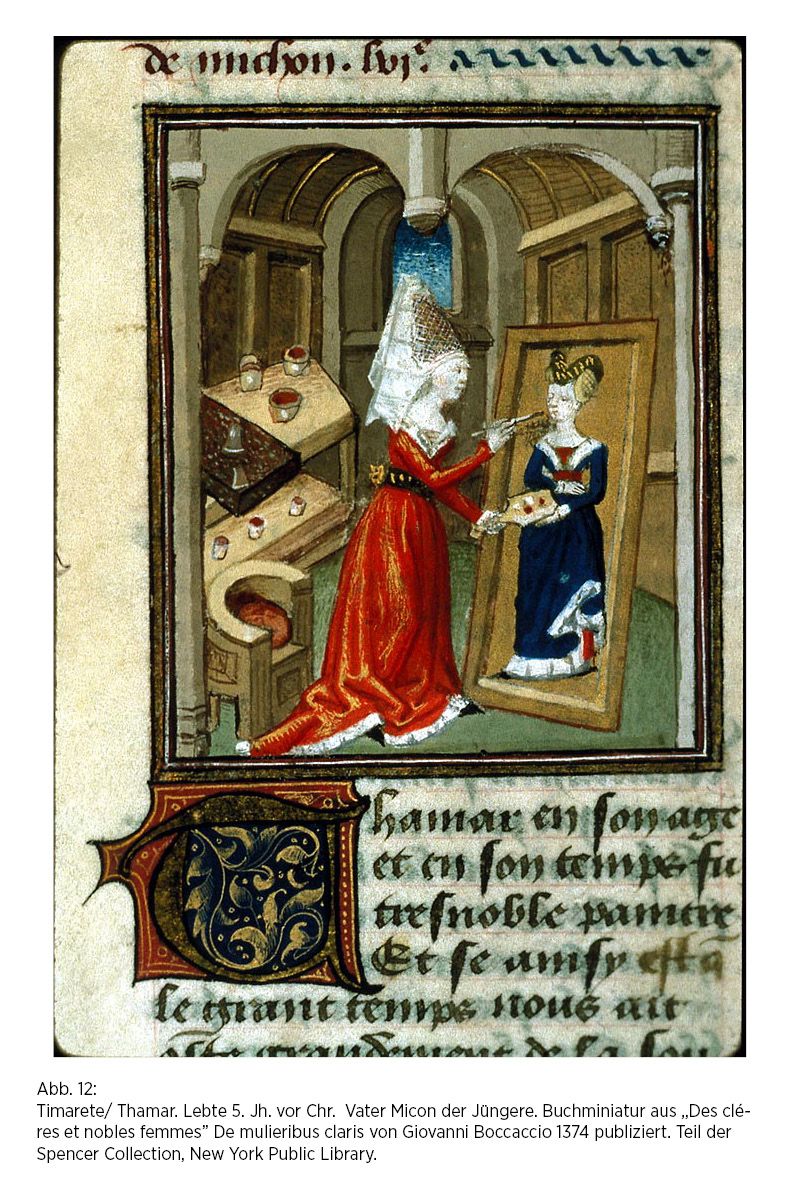 de michon. lvi.
Thamar en son age
et en son temps fu
tresnoble paintre
Et se ainsy est q̄
le grant temps nous ait
grandement de la
Abb. 12:
Timarete/ Thamar. Lebte 5. Jh. vor Chr.  Vater Micon der Jüngere. Buchminiatur aus „Des clé-
res et nobles femmes” De mulieribus claris von Giovanni Boccaccio 1374 publiziert. Teil der
Spencer Collection, New York Public Library.